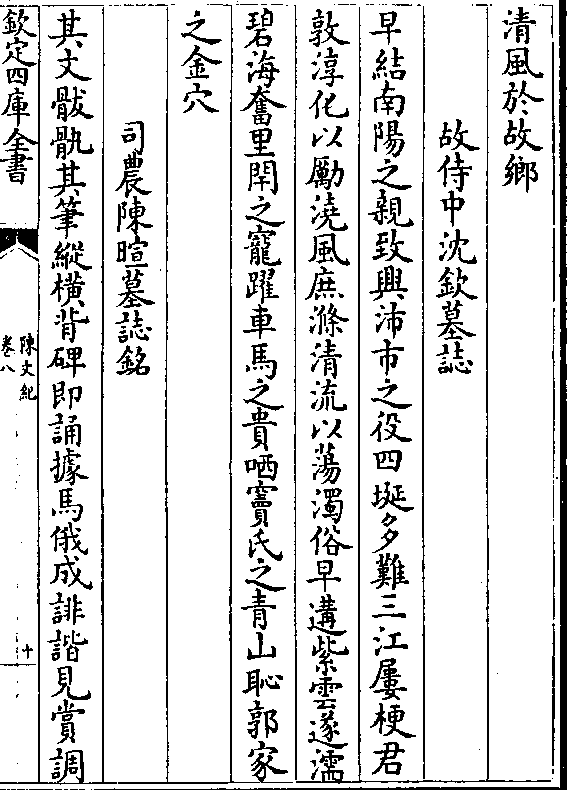 清風於故鄉
故侍中沈欽墓誌
早結南陽之親致興沛市之役四埏多難三江屢梗君
敦淳化以勵澆風庶滌清流以蕩濁俗早遘紫雲遂濡
碧海奮里閈之寵躍車馬之貴哂竇氏之青山恥郭家
之金穴
司農陳暄墓誌銘
其文骳骫其筆縱横背碑即誦據馬俄成誹諧見賞調
欽定四庫全書
陳文紀
卷八
十